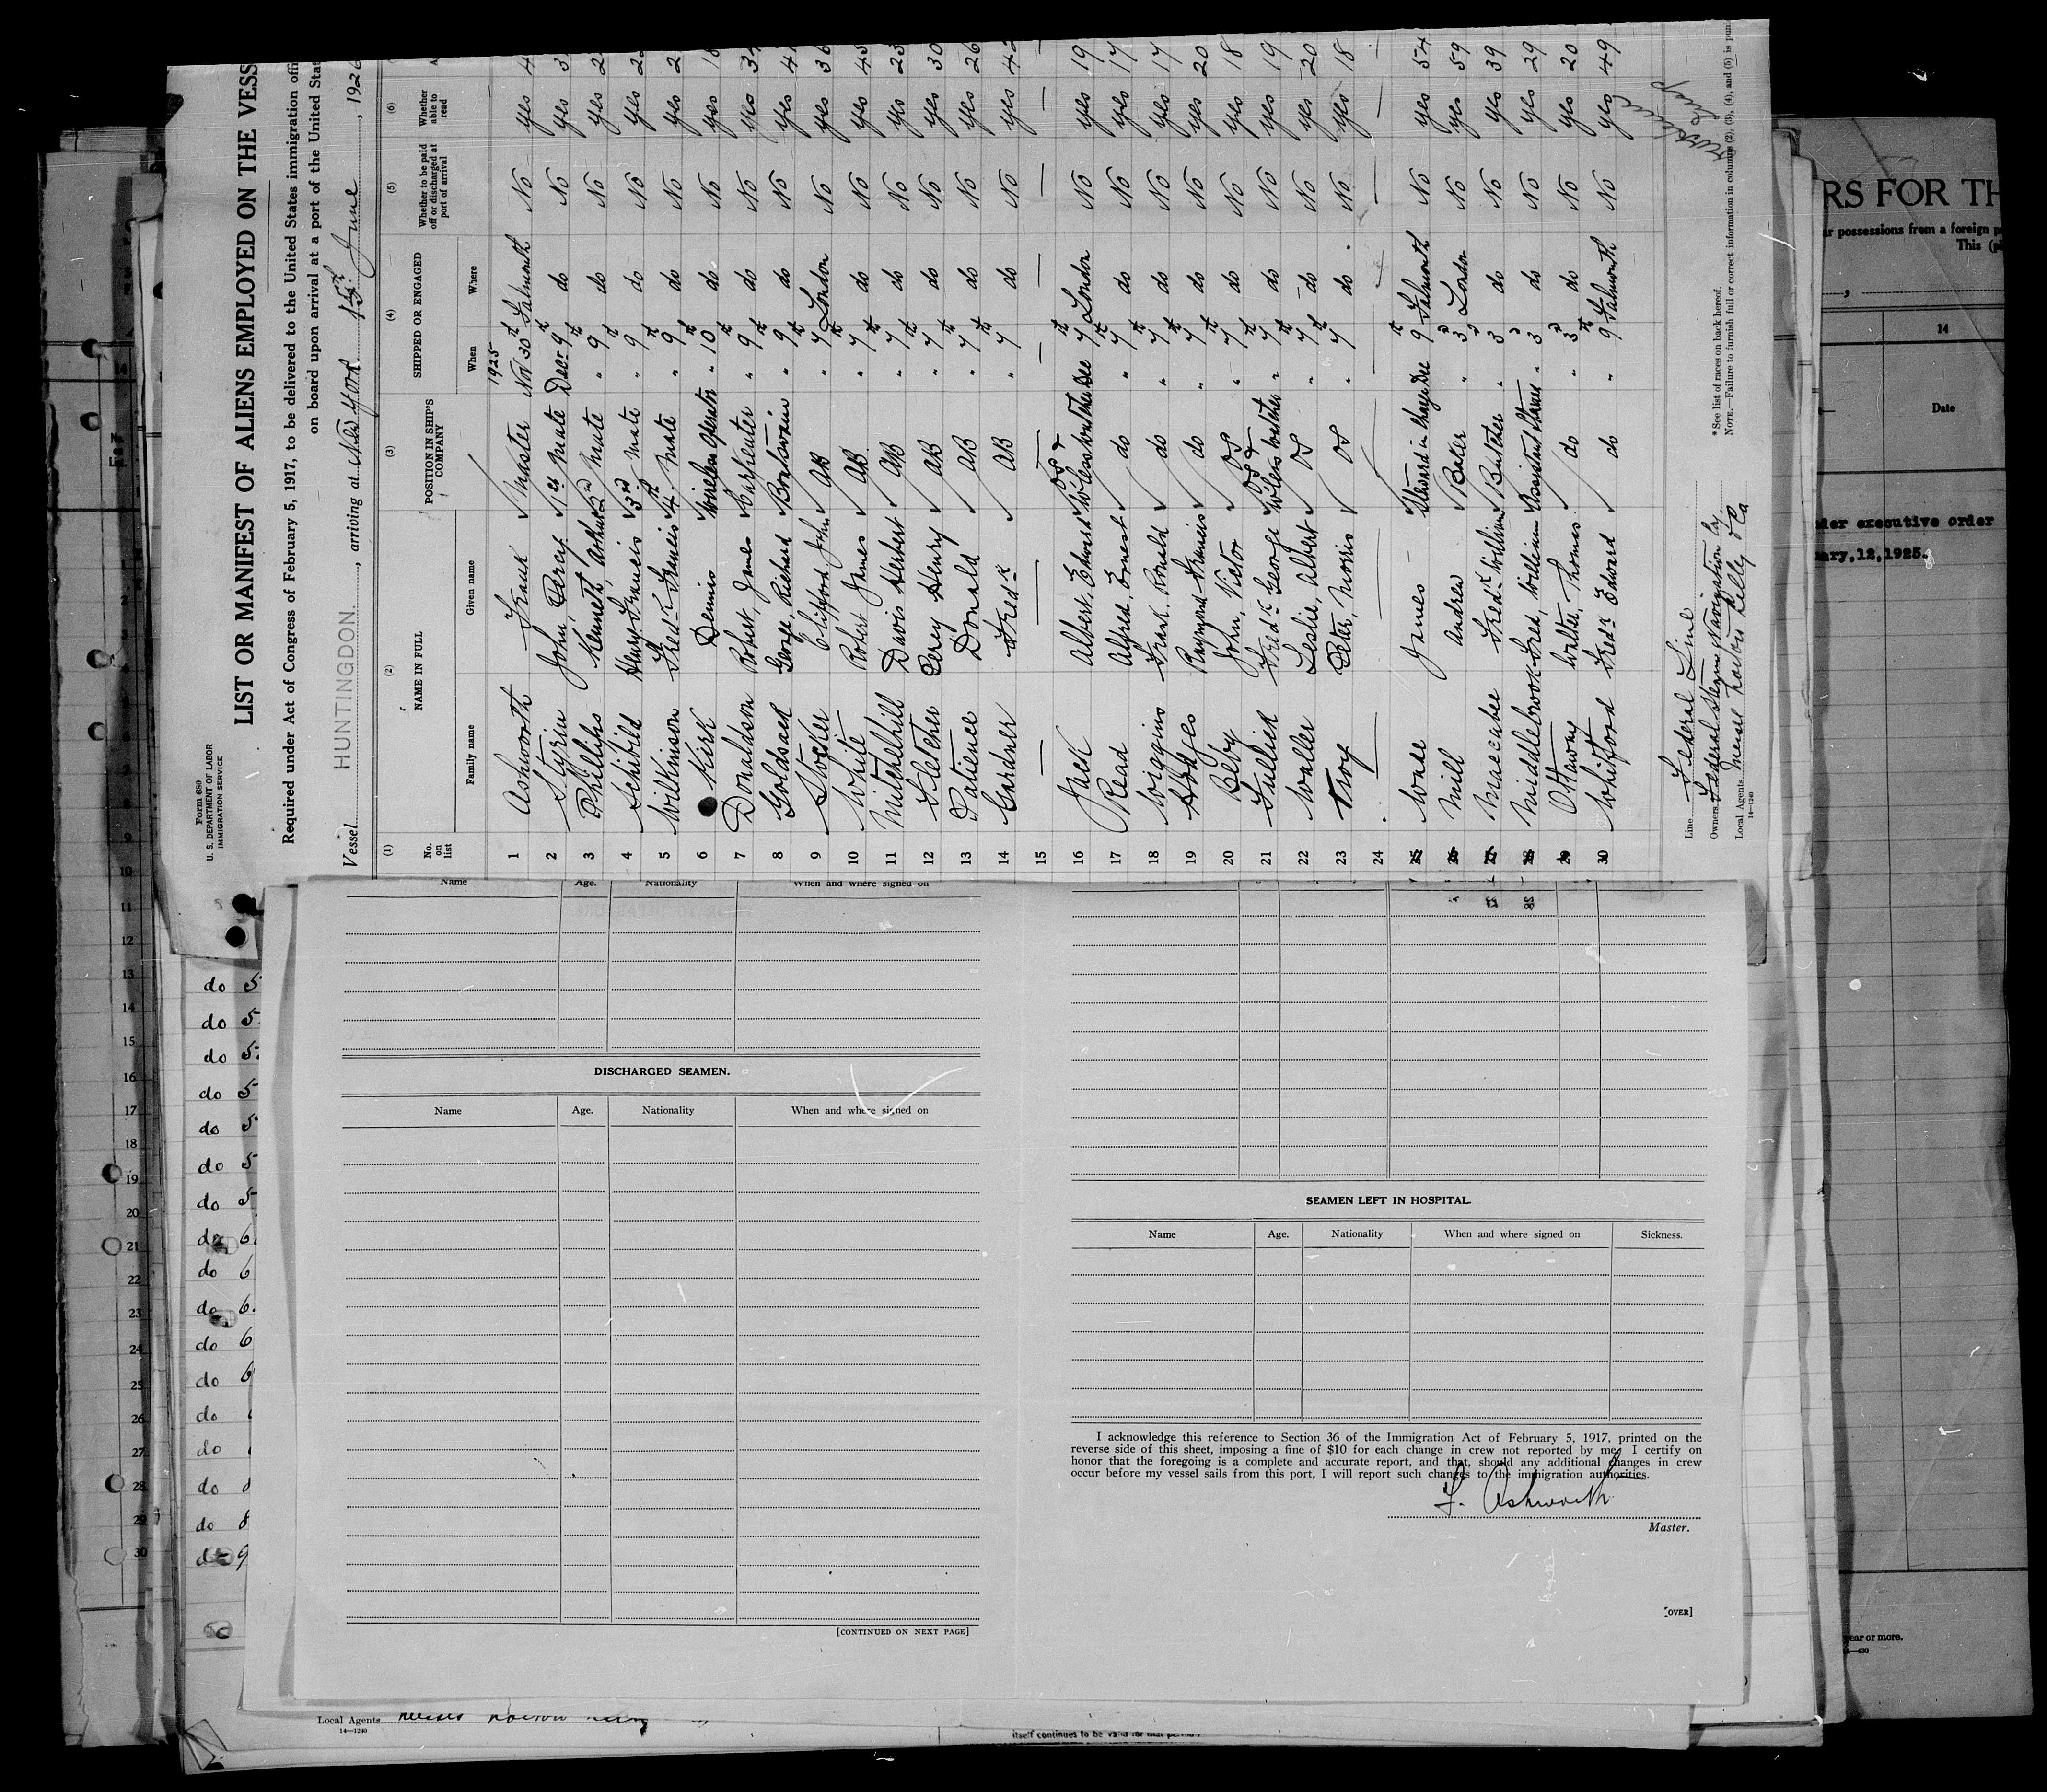 Form 680
U. S. DEPARTMENT OF LABOR
IMMIGRATION SERVICE
LIST OR MANIFEST OF ALIENS EMPLOYED ON THE VESS
Required under Act of Congress of February 5, 1917, to be delivered to the United States immigration offi
on board upon arrival at a port of the United Stat
Vessel HUNTINGDON. , arriving at New York 15th June , 1926
(1) (2) (3) (4) (5) (6)
No. on list NAME IN FULL POSITION IN SHIP'S COMPANY SHIPPED OR ENGAGED Whether to be paid off or discharged at port of arrival Whether able to read A
Family name Given name When Where
1925
1 Ashworth Frank Master Nov 30th Falmouth No yes 4
2 John, Percy 1st Mate Decr 9th do No yes 3
3 Phillips Kenneth, Arthur 2nd Mate " 9th do No yes 2
4 Henry Francis 3rd Mate " 9th do No yes 2
5 Wilkinson Fredk Francis 4th Mate " 9th do No yes 2
6 Kirk Dennis Wireless Operator " 10th do No yes 18
7 Donaldson Robert, James Carpenter " 9th do No yes 34
8 Goldsack George, Richard Boatswain " 9th do No yes 41
9 Stocker Clifford John AB " 7th London No yes 36
10 White Robert James AB " 7th do No yes 45
11 Mitchelhill Davis Herbert AB " 7th do No yes 23
12 Fletcher Percy Henry AB " 7th do No yes 30
13 Patience Donald AB " 7th do No yes 26
14 Gardner Fredk AB " 7th do No yes 42
15 — — — — — — —
16 Jack Albert, Edward OS & Wireless Watcher Dec 7th London No yes 19
17 Read Alfred, Ernest do " 7th do No yes 17
18 Wiggins Frank, Ronald do " 7th do No yes 17
19 Hodges Raymond Francis do " 7th do No yes 20
20 Beby John, Victor OS " 7th do No yes 18
21 Fullick Fredk George OS & Wireless Watcher " 7th do No yes 19
22 Waller Leslie, Albert OS " 7th do No yes 20
23 Troy Peter, Morris OS " 7th do No yes 18
24
25 James Steward in charge Dec 9th Falmouth No yes 54
26 Mill Andrew Baker " 3rd London No yes 59
27 Maccabee Fredk William Butcher " 3rd do No yes 39
28 Middlebrook Fred, William Assistant Steward " 3rd do No yes 29
29 Ottaway Walter, Thomas do " 3rd do No yes 20
30 Whifford Fredk Edward do " 9th Falmouth No yes 49
Line Federal Line
Owners Federal Steam Navigation Coy
Local Agents Messrs Norton Lilly & Co
14—1240
* See list of races on back hereof.
NOTE.—Failure to furnish full or correct information in columns (2), (3), (4), and (5) is puni
Name Age. Nationality When and where signed on
DISCHARGED SEAMEN.
Name Age. Nationality When and where signed on
[CONTINUED ON NEXT PAGE]
SEAMEN LEFT IN HOSPITAL.
Name Age. Nationality When and where signed on Sickness.
I acknowledge this reference to Section 36 of the Immigration Act of February 5, 1917, printed on the
reverse side of this sheet, imposing a fine of $10 for each change in crew not reported by me. I certify on
honor that the foregoing is a complete and accurate report, and that, should any additional changes in crew
occur before my vessel sails from this port, I will report such changes to the immigration authorities.
F. Ashworth
Master.
[OVER]
RS FOR TH
ar possessions from a foreign p
This (p
14
Date
der executive order
ary, 12, 1925.
year or more.
10
11
12
13
14
15
16
17
18
19
20
21
22
23
24
25
26
27
28
29
30
do 5
do 5
do 5
do 5
do 5
do 5
do 5
do 6
do 6
do 6
do 6
do 6
do
do
do 8
do 8
do 9
Local Agents
14—1240
itself continues to be valid for that period.